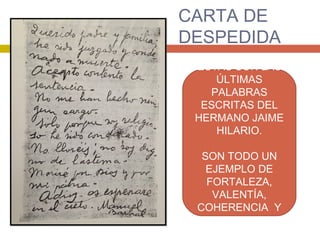 CARTA DE
DESPEDIDA
Querido padre y familia;
he sido juzgado y conde
nado a muerte.
Acepto contento la
sentencia.
No me han hecho nin
gun cargo.
Solo por que soy religio
so he sido condenado.
No lloreis; no soy dig
no de lastima.
Moriré por Dios y por
mi patria.
Adios, os esperaré
en el cielo. Manuel
Barbal
ÚLTIMAS
PALABRAS
ESCRITAS DEL
HERMANO JAIME
HILARIO.
SON TODO UN
EJEMPLO DE
FORTALEZA,
VALENTÍA,
COHERENCIA Y